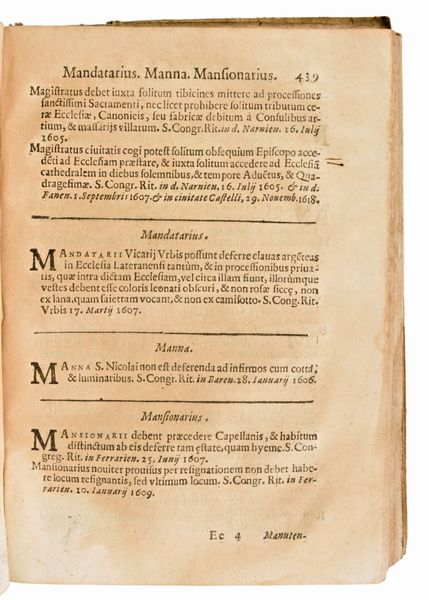 Mandatarius. Manna. Mansionarius. 439
Magistratus debet iuxta solitum tibicines mittere ad processiones
sanctissimi Sacramenti, nec licet prohibere solitum tributum ce-
ræ Ecclesiæ, Canonicis, seu fabricæ debitum à Consulibus ar-
tium, & massarijs villarum. S. Congr. Rit. in d. Narnien. 16. Iulij
1605.
Magistratus ciuitatis cogi potest solitum obsequium Episcopo acce-
dēti ad Ecclesiam præstare, & iuxta solitum accedere ad Ecclesiā
cathedralem in diebus solemnibus, & tempore Aduētus, & Qua-
dragesimæ. S. Congr. Rit. in d. Narnien, 16. Iulij 1605. & in d.
Fanen. 1. Septembris 1607. & in ciuitate Castelli, 29. Nouemb. 1618.
Mandatarius.
MANDATARII Vicarij Vrbis possunt deferre clauas argēteas
in Ecclesia Lateranensi tantùm, & in processionibus priua-
tis, quæ intra dictam Ecclesiam, vel circa illam fiunt, illorumque
vestes debent esse coloris leonati obscuri, & non rosæ siccę, non
ex lana, quam saiettam vocant, & non ex camisotto. S. Cong. Rit.
Vrbis 17. Martij 1607.
Manna.
MANNA S. Nicolai non est deferenda ad infirmos cum cotta,
& luminaribus. S. Congr. Rit. in Baren. 28. Ianuarij 1606.
Mansionarius.
MANSIONARII debent præcedere Capellanis, & habitum
distinctum ab eis deferre tam ęstate, quam hyeme. S. Con-
greg. Rit. in Ferrarien. 25. Iunij 1607.
Mansionarius nouiter prouisus per resignationem non debet habe-
re locum resignantis, sed vltimum locum. S. Congr. Rit. in Fer-
rarien. 10. Ianuarij 1609.
Ee 4 Manuten-